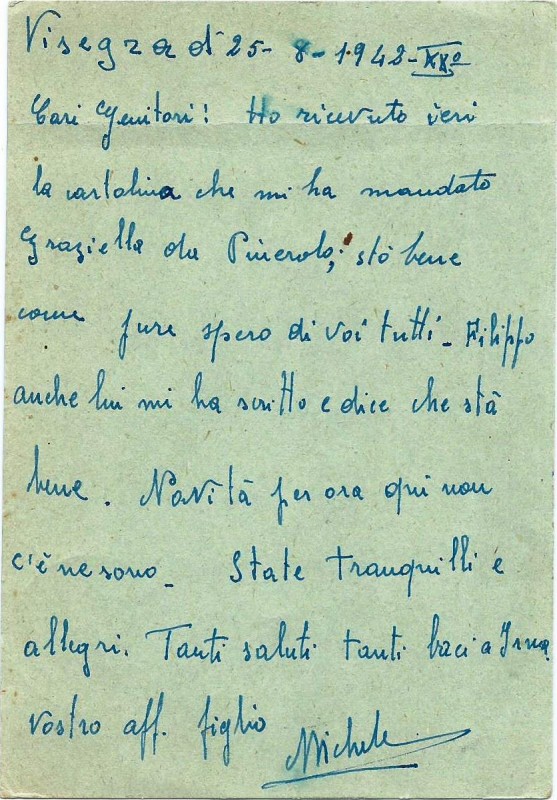 Visegrad 25-8-1942-XXº
Cari Genitori! Ho ricevuto ieri
la cartolina che mi ha mandato
Graziella da Pinerolo; stò bene
come pure spero di voi tutti_ Filippo
anche lui mi ha scritto e dice che stà
bene. Novità per ora qui non
c'è ne sono_ State tranquilli e
allegri. Tanti saluti tanti baci a Irma
vostro aff. figlio
Michele